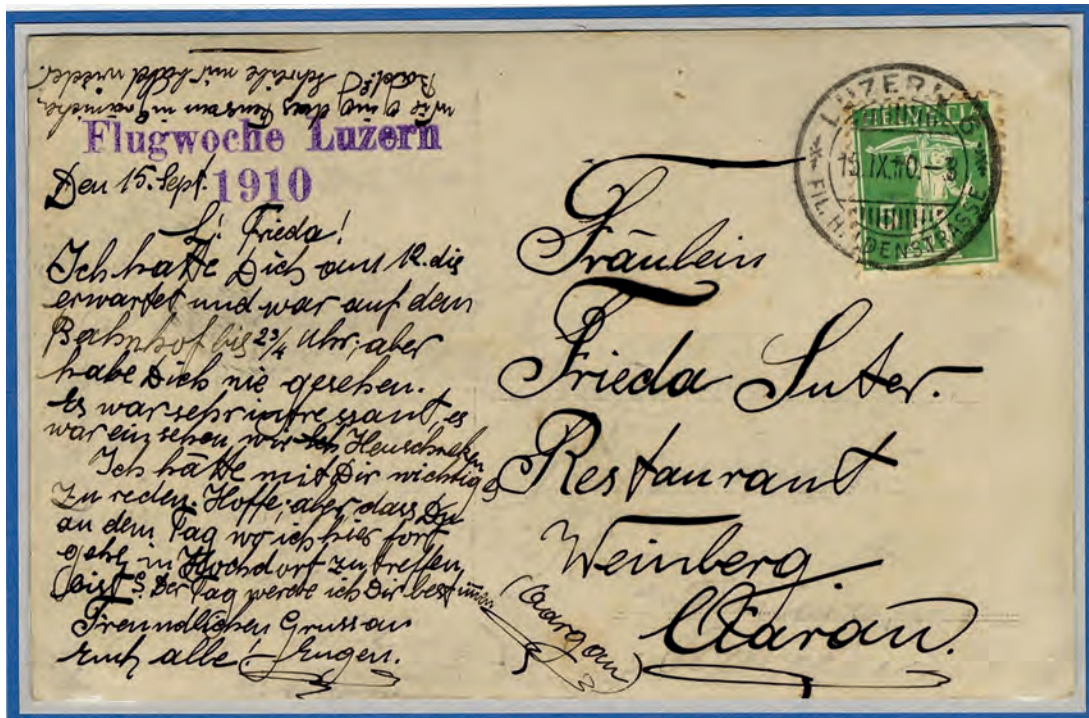 Flugwoche Luzern
1910
Den 15. Sept.
L! Frieda!
Ich hatte Dich am 12. dis
erwartet und war auf dem
Bahnhof bis 2 3/4 Uhr, aber
habe Dich nie gesehen.
Es war sehr intressant, es
war ein sehen, wir Heuschrecken
Ich hätte mit Dir wichtig
zu reden. Hoffe, aber dass Du
an dem Tag wo ich hier fort
gehe in Hochdorf zu treffen
bist? Der Tag werde ich Dir bestimmen
Freundlichen Gruss an
Euch alle! Eugen.
wie sind das
schreibe mir bald wieder.
LUZERN 5
15.IX.10.–3
FIL. HALDENSTRASSE
HELVETIA
Fräulein
Frieda Suter.
Restaurant
Weinberg.
Aarau.
(Aargau)